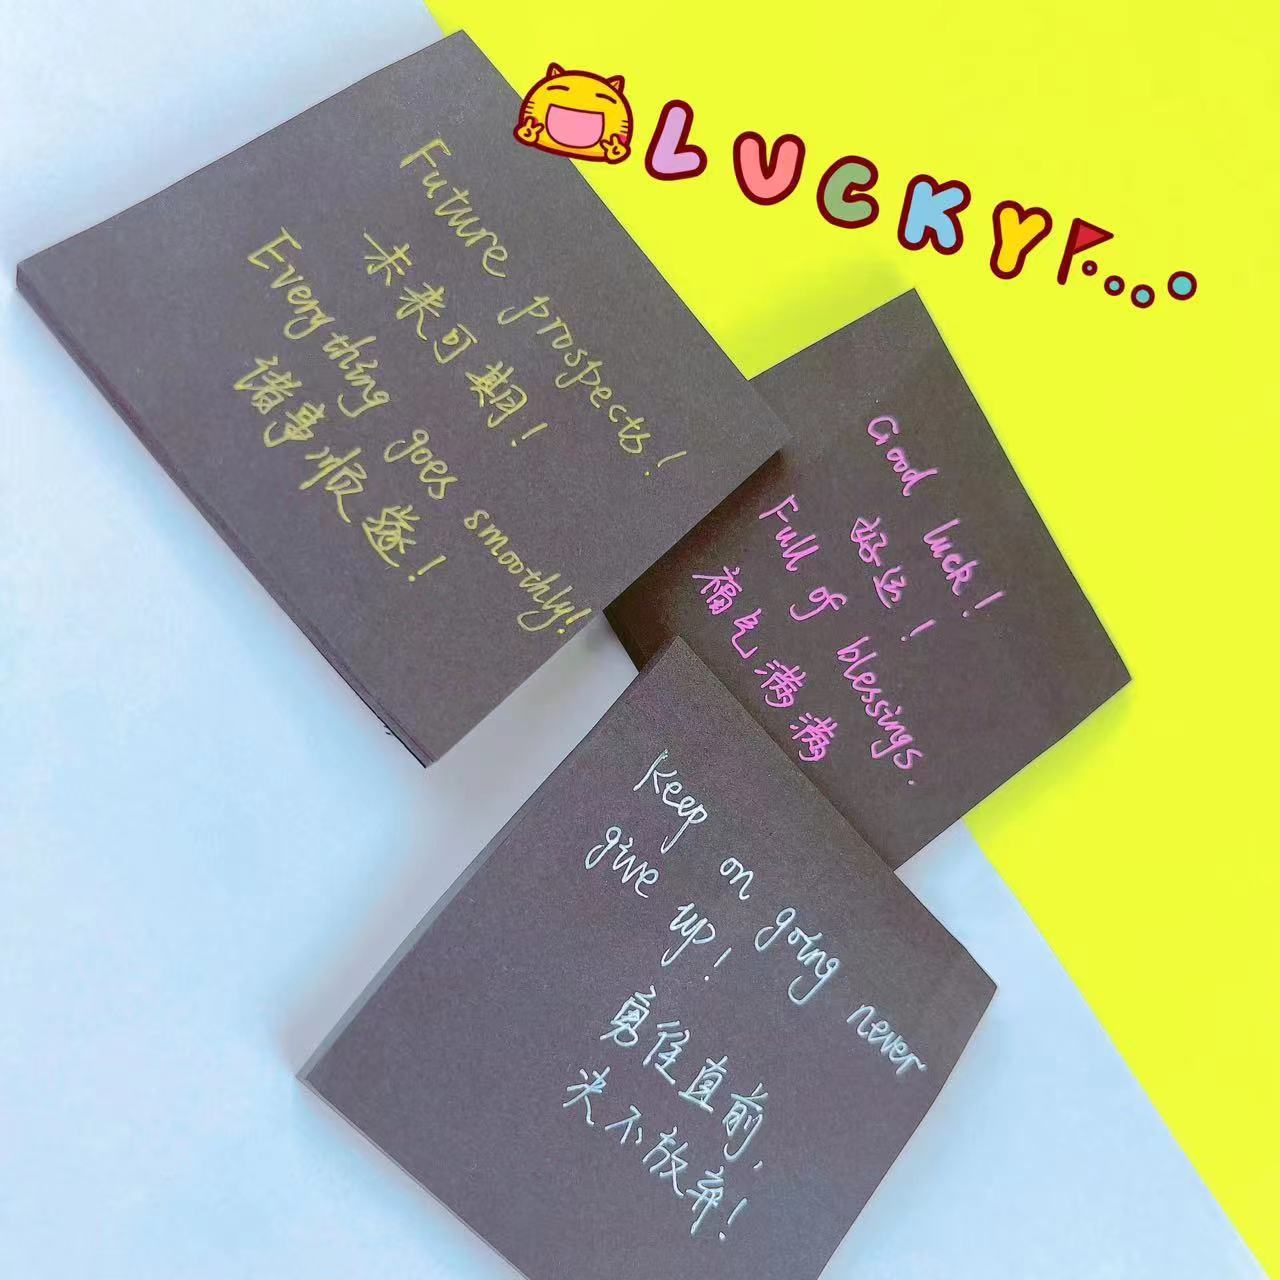 LUCKY
Future prospects!
未来可期!
Everything goes smoothly!
诸事顺遂!
Good luck!
好运!
Full of blessings.
福气满满
Keep on going never
give up!
勇往直前,
决不放弃!